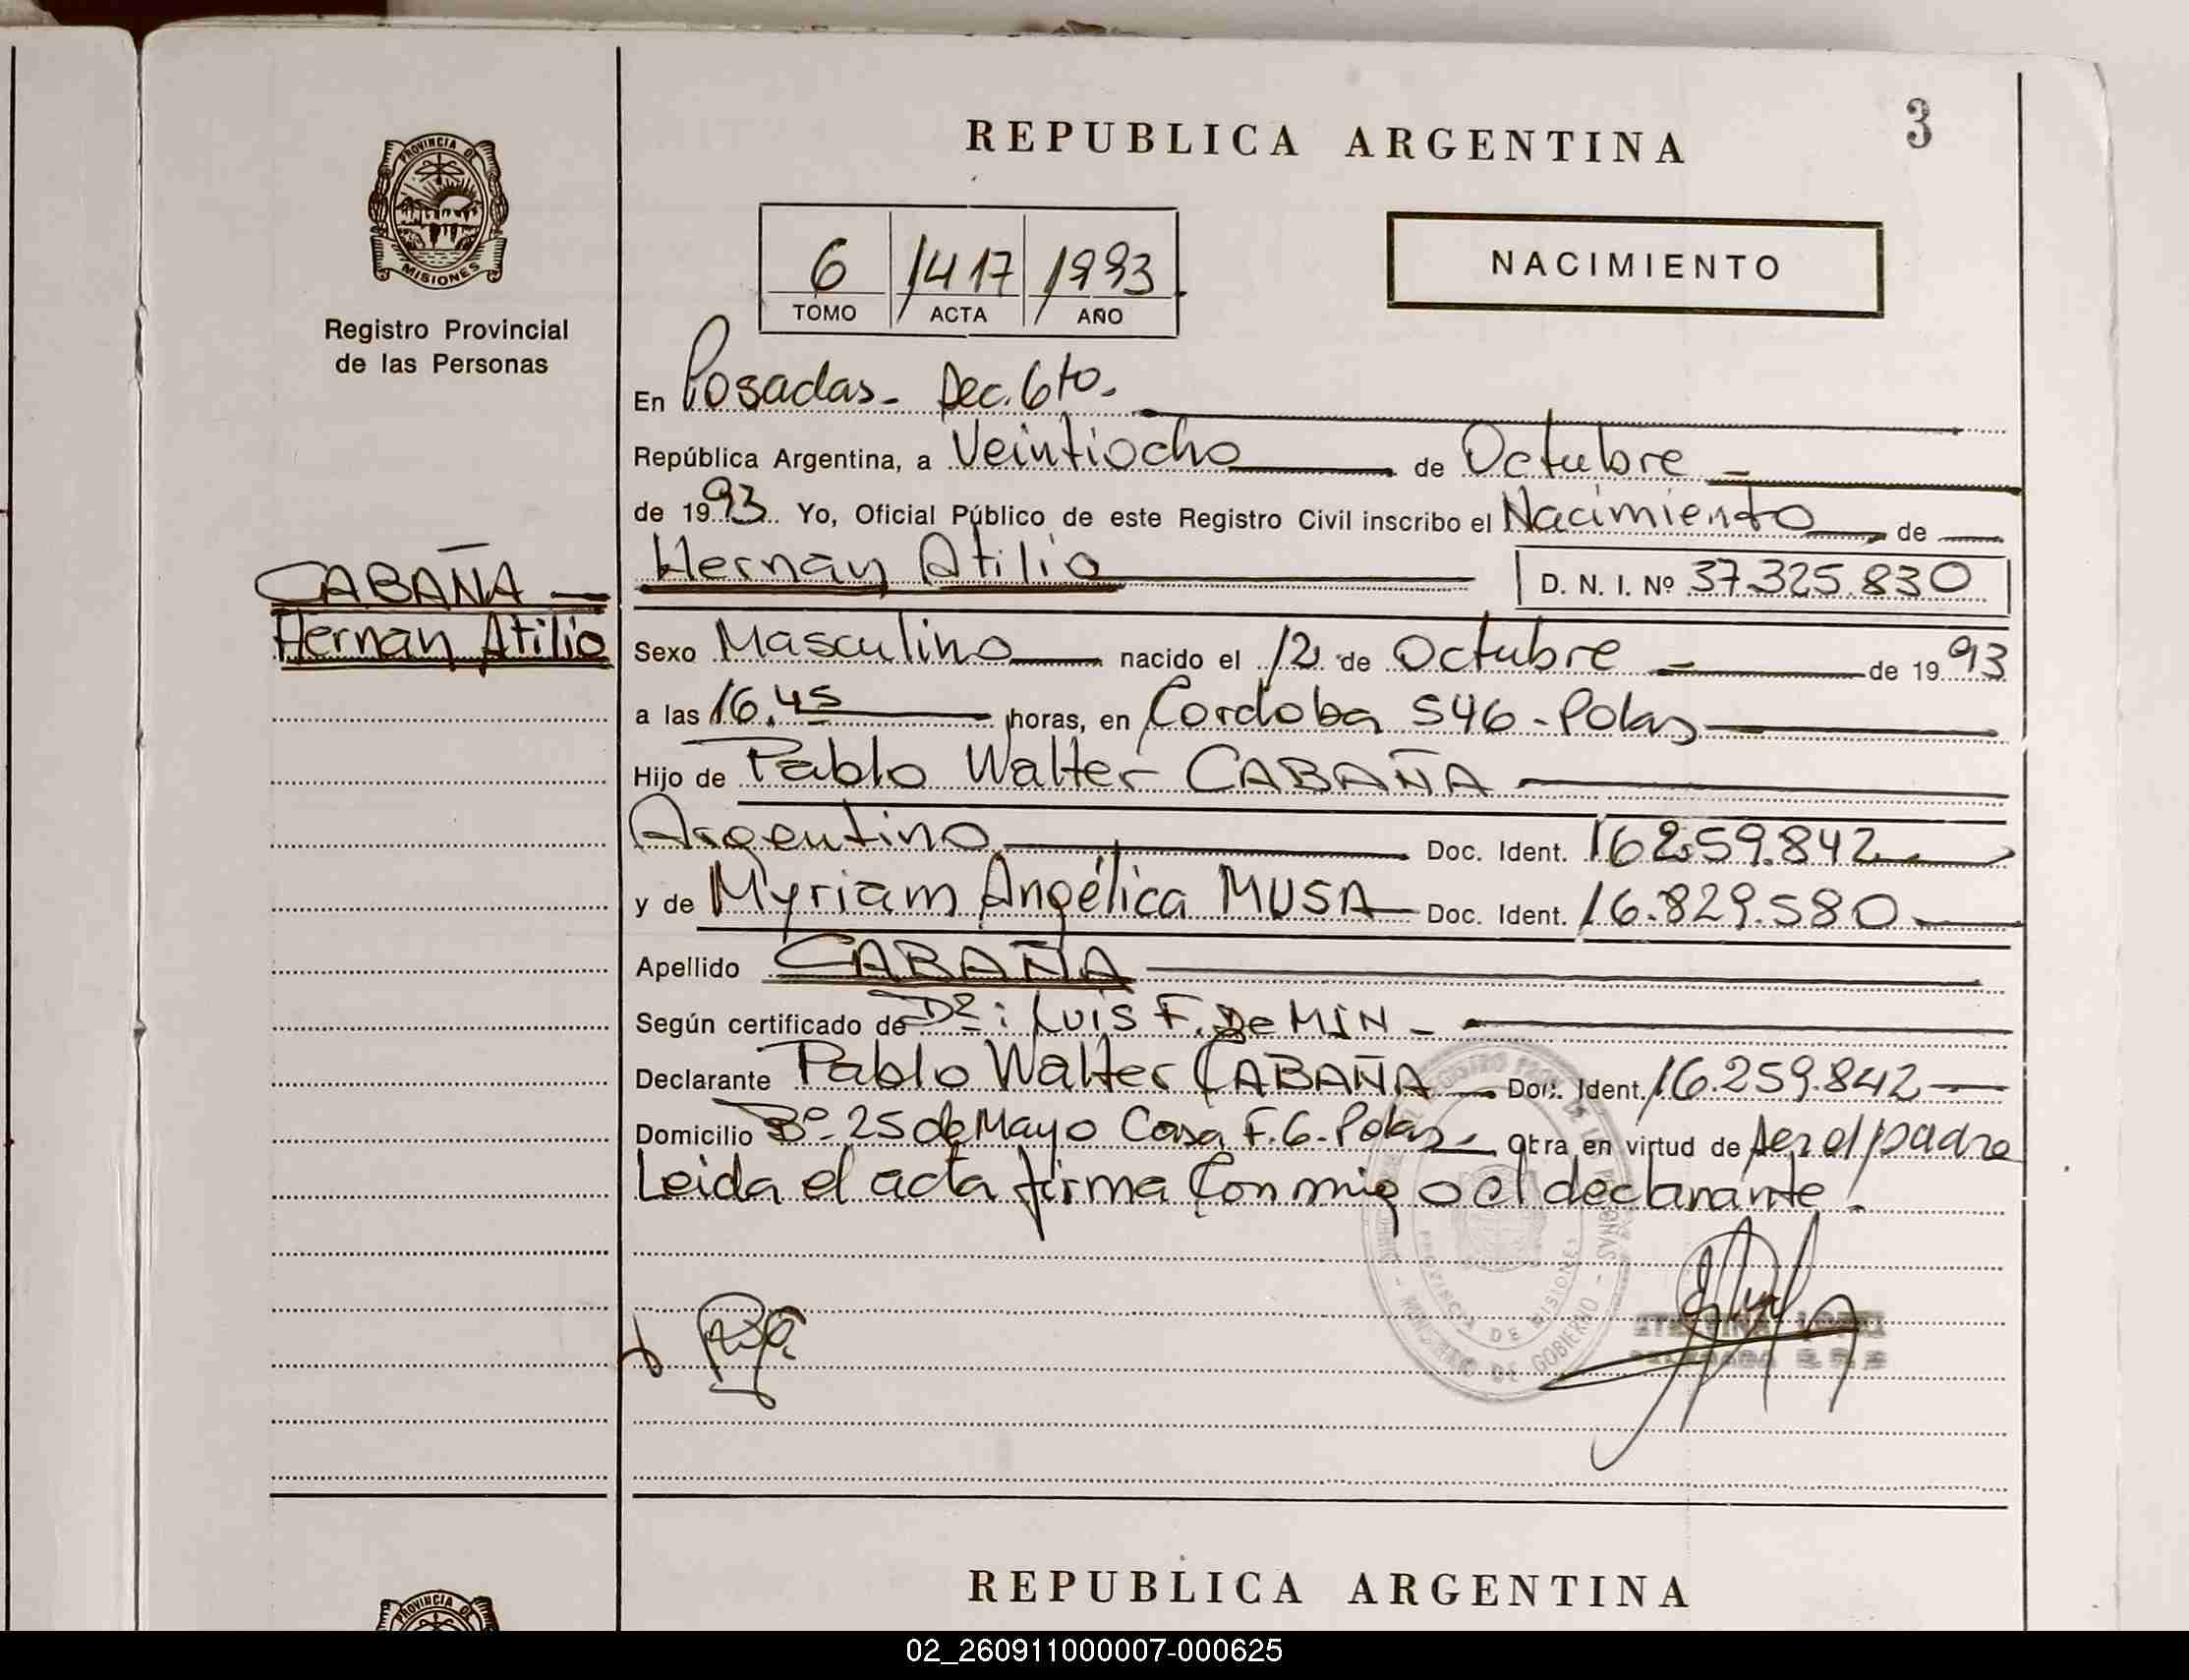 3
REPUBLICA ARGENTINA
PROVINCIA DE
MISIONES
Registro Provincial
de las Personas
6 1417 1993
TOMO ACTA AÑO
NACIMIENTO
En Posadas - Dec. 6to.
República Argentina, a Veintiocho de Octubre
de 1993 Yo, Oficial Público de este Registro Civil inscribo el Nacimiento de
CABAÑA
Hernan Atilio
Hernan Atilio D. N. I. Nº 37.325.830
Sexo Masculino nacido el 12 de Octubre de 1993
a las 16,45 horas, en Cordoba 546 - Pdas
Hijo de Pablo Walter CABAÑA
Argentino Doc. Ident. 16.259.842
y de Myriam Angélica MUSA Doc. Ident. 16.829.580
Apellido CABAÑA
Según certificado de Dr: Luis F. De MIN -
Declarante Pablo Walter CABAÑA Doc. Ident. 16.259.842
Domicilio Bº 25 de Mayo Casa F.6 - Pdas Obra en virtud de ser el padre
Leida el acta firma Conmigo el declarante
PROVINCIA DE MISIONES
DE GOBIERNO
REPUBLICA ARGENTINA
PROVINCIA DE
02_260911000007-000625